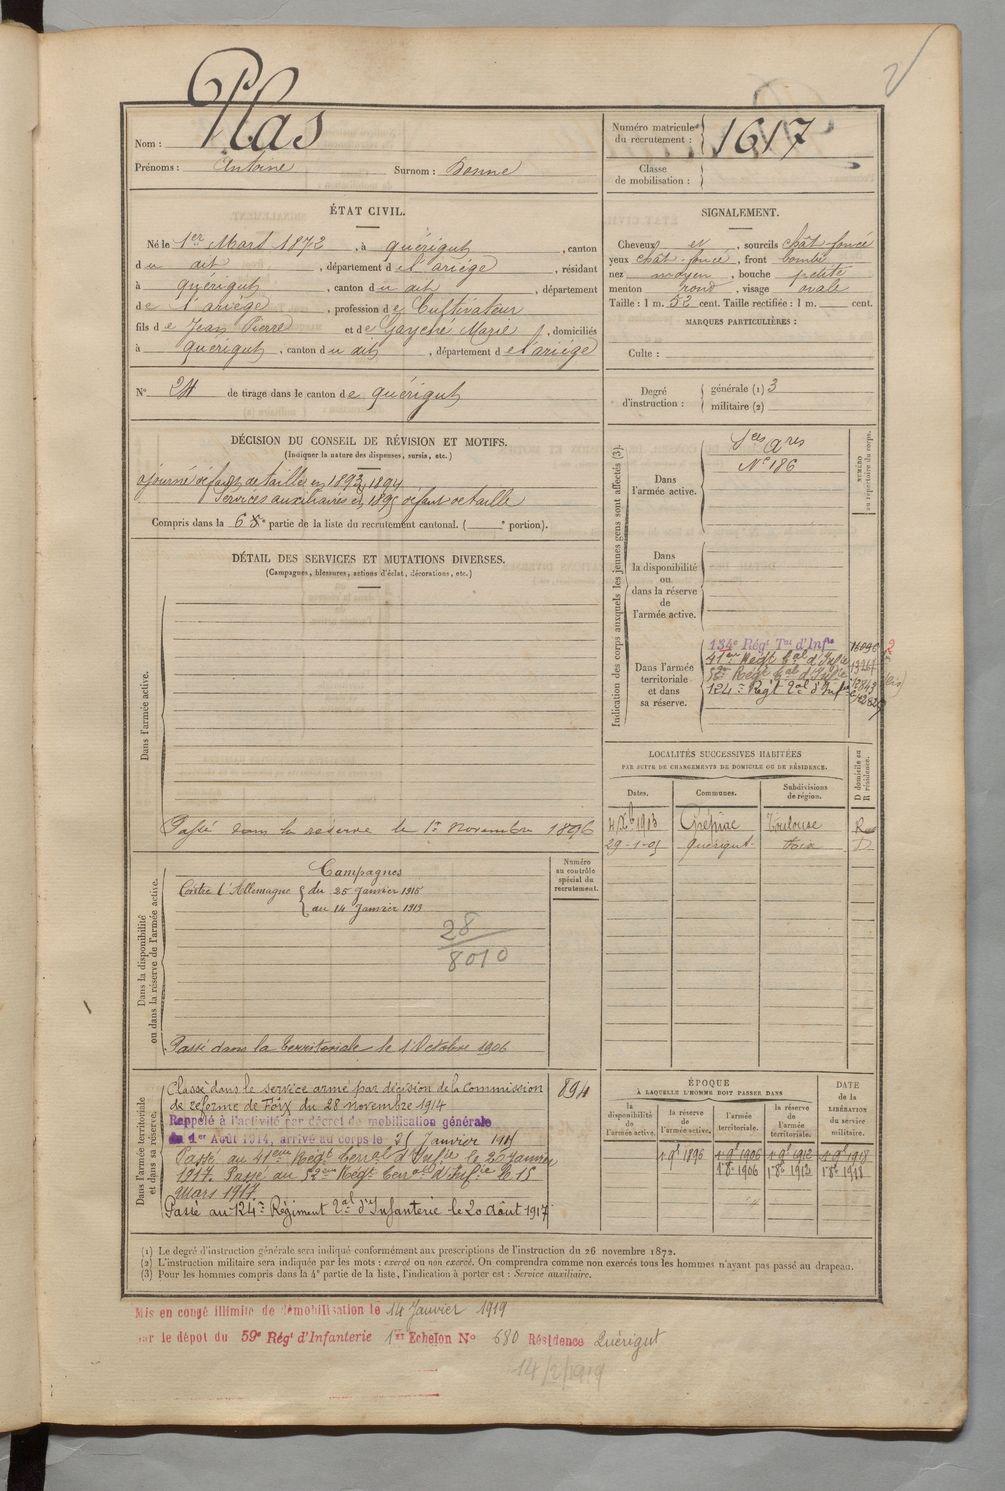 Nom : Plas
Prénoms : Antoine Surnom : Bonne
ÉTAT CIVIL.
Né le 1er Mars 1872, à Quérigut, canton
du dit, département de l'ariège, résidant
à Quérigut, canton du dit, département
de l'ariège, profession de Cultivateur
fils de Jean Pierre et de Gayche Marie, domiciliés
à Quérigut, canton du dit, département de l'ariège
N° 24 de tirage dans le canton de Quérigut
DÉCISION DU CONSEIL DE RÉVISION ET MOTIFS.
(Indiquer la nature des dispenses, sursis, etc.)
ajourné défaut de taille en 1893, 1894
Services auxiliaires en 1895 défaut de taille
Compris dans la 6e partie de la liste du recrutement cantonal. ( e portion).
DÉTAIL DES SERVICES ET MUTATIONS DIVERSES.
(Campagnes, blessures, actions d'éclat, décorations, etc.)
Dans l'armée active.
Passé dans la réserve le 1er Novembre 1896
Dans la disponibilité
ou dans la réserve de l'armée active.
Campagnes
Contre l'Allemagne { du 25 Janvier 1915
au 14 Janvier 1919
28
8010
Passé dans la territoriale le 1 Octobre 1906
Numéro
au contrôle
spécial du
recrutement.
Dans l'armée territoriale
et dans sa réserve.
Classé dans le service armé par décision de la Commission
de réforme de Foix du 28 novembre 1914
Rappelé à l'activité par décret de mobilisation générale
du 1er Août 1914, arrivé au corps le 25 Janvier 1915
Passé au 41eme Régt Terral d'Infie le 20 Janvier
1917. Passé au 52eme Régt Terral d'Infie le 15
Mars 1917.
Passé au 124e Régiment Tal d'Infanterie le 20 Août 1917
894
Numéro matricule
du recrutement : 1617
Classe
de mobilisation :
SIGNALEMENT.
Cheveux et, sourcils chât-foncé
yeux chât-foncé, front bombé
nez moyen, bouche petite
menton rond, visage ovale
Taille : 1 m. 52 cent. Taille rectifiée : 1 m. cent.
MARQUES PARTICULIÈRES :
Culte :
Degré
d'instruction :
générale (1) 3
militaire (2)
Indication des corps auxquels les jeunes gens sont affectés (3).
NUMÉRO
au répertoire du corps.
Dans
l'armée active.
Sces Ares
N° 186
Dans
la disponibilité
ou
dans la réserve
de
l'armée active.
Dans l'armée
territoriale
et dans
sa réserve.
134e Régt Tal d'Infie
41eme Régt Tal d'Infie
52me Régt Tal d'Infie
124e Régt Tal d'Infie
LOCALITÉS SUCCESSIVES HABITÉES
PAR SUITE DE CHANGEMENTS DE DOMICILE OU DE RÉSIDENCE.
D domicile ou
R résidence.
Dates. Communes. Subdivisions
de région.
4 Xbre 1913 Grépiac Toulouse R
29-1-05 Quérigut Foix D
ÉPOQUE
À LAQUELLE L'HOMME DOIT PASSER DANS
DATE
de la
LIBÉRATION
du service
militaire.
la
disponibilité
de
l'armée active.
la réserve
de
l'armée active.
l'armée
territoriale.
la réserve
de
l'armée
territoriale.
1 9bre 1896 1 9bre 1906 1 9bre 1912 1 9bre 1918
1 8bre 1906 1 8bre 1912 1 8bre 1918
(1) Le degré d'instruction générale sera indiqué conformément aux prescriptions de l'instruction du 26 novembre 1872.
(2) L'instruction militaire sera indiquée par les mots : exercé ou non exercé. On comprendra comme non exercés tous les hommes n'ayant pas passé au drapeau.
(3) Pour les hommes compris dans la 4e partie de la liste, l'indication à porter est : Service auxiliaire.
Mis en congé illimité de démobilisation le 14 Janvier 1919
par le dépôt du 59e Régt d'Infanterie 1er Echelon N° 680 Résidence Quérigut
14/2/1919